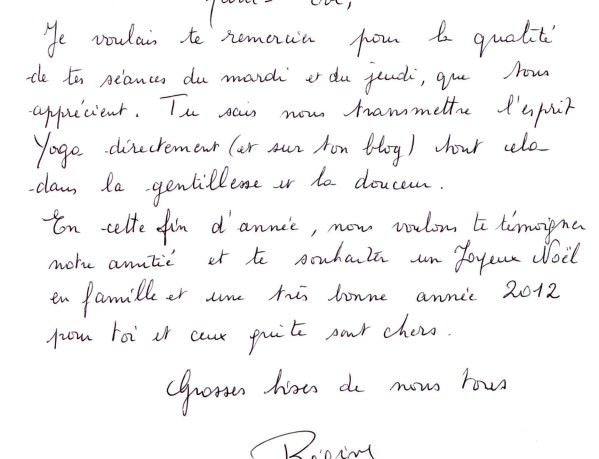 Je voulais te remercier pour la qualité
de tes séances du mardi et du jeudi, que tous
apprécient. Tu sais nous transmettre l'esprit
Yoga directement (et sur ton blog) tout cela
dans la gentillesse et la douceur.
En cette fin d'année, nous voulons te témoigner
notre amitié et te souhaiter un Joyeux Noël
en famille et une très bonne année 2012
pour toi et ceux qui te sont chers.
Grosses bises de nous tous